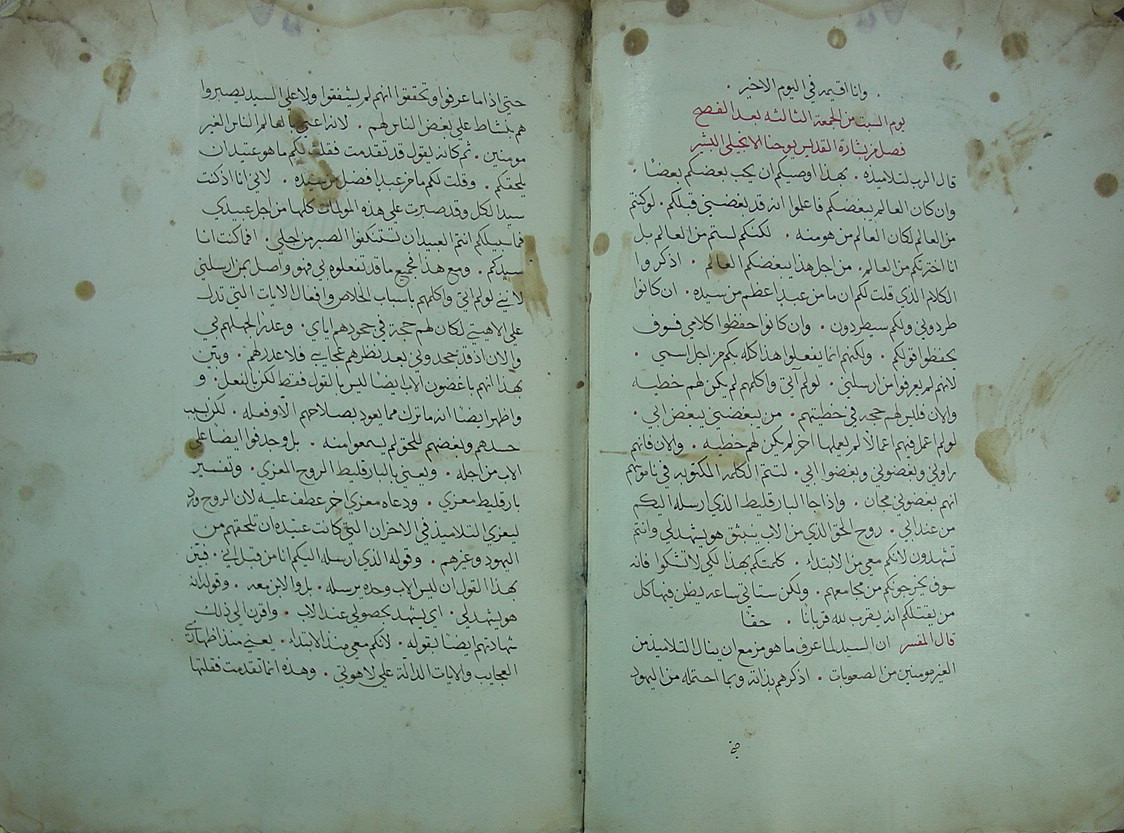 . وانا اقيمه في اليوم الاخير .
يوم السبت من الجمعة الثالثه بعد الفصح
فصل من بشارة القديس يوحنا الانجيلي البشير
قال الرب لتلاميذه . بهذا اوصيكم ان يحب بعضكم بعضًا .
وان كان العالم يبغضكم فاعلموا انه قد بغضني قبلكم . لو كنتم
من العالم لكان العالم من هو منه . لكنكم لستم من العالم بل
انا اخترتكم من العالم . من اجل هذا يبغضكم العالم . اذكروا
الكلام الذي قلت لكم ان ما من عبدٍ اعظم من سيده . ان كانوا
طردوني ولكم سيطردون . وان كانوا حفظوا كلامي فسوف
يحفظوا قولكم . ولكنهم انما يفعلوا هذا كله بكم من اجل اسمي .
لانهم لم يعرفوا من ارسلني . لو لم آتي واكلمهم لم يكن لهم خطيه
والان فليس لهم حجه في خطيتهم . من يبغضني يبغض ابي .
لو لم اعمل فيهم اعمالًا لم يعملها اخر لم يكن لهم خطيه . والان فانهم
راوني وبغضوني وبغضوا ابي . لتتم الكلمه المكتوبه في ناموسهم
انهم بغضوني مجان . واذا جا البارقليط الذي ارسله اليكم
من عند ابي . روح الحق الذي من الاب ينبثق هو يشهد لي وانتم
تشهدون لانكم معي من الابتداء . كلمتكم بهذا لكي لا تشكوا فانه
سوف يخرجوكم من مجامعهم . ولكن ستاتي ساعه يظن فيها كل
من يقتلكم انه يقرب لله قربانًا . حقًا
قال المفسر ان السيد لما عرف ما هو مزمع ان ينال التلاميذ من
الغير مومنين من الصعوبات . اذكرهم بذاته وبما احتمله من اليهود
حتى اذا ما عرفوا وتحققوا انهم لم يشفقوا ولا على السيد يصبروا
هم بنشاط على بغض الناس لهم . لانه اعنى بالعالم الناس الغير
مومنين . ثم كانه يقول قد تقدمت فقلت لكم ما هو عتيد ان
يلحقكم . وقلت لكم ما من عبدٍ افضل من سيده . لاني انا اذ كنت
سيد الكل وقد صبرت على هذه الموبقات كلها من اجل عبيدي
فما سبيلكم انتم العبيد ان تستنكفوا الصبر من اجلي . افما كنت انا
سيدكم . ومع هذا فجميع ما قد تفعلوه بي فهو واصل بمن ارسلني
لانني لو لم اتي واكلمهم باسباب الخلاص وافعال الايات التي تدل
على الاهيتي لكان لهم حجة في جحودهم اياي . وعذر الجهلهم بي
والان اذ قد جحدوني بعد نظرهم عجايبي فلا عذر لهم . وبيّن
بهذا انهم باغضون الاب ايضا ليس بالقول فقط لكن بالفعل . و
واظهر ايضا انه ما ترك مما يعود بصلاحهم الا وفعله . لكن لسبب
حسدهم وبغضهم للحق لم يسمعوا منه . بل وجدفوا ايضا على
الاب من اجله . ويعني بالبارقليط الروح المعزي . وتفسير
بارقليط معزي . ودعاه معزي اخر عطف عليه لان الروح ورد
ليعزي التلاميذ في الاحزان التي كانت عتيده ان تلحقهم من
اليهود وغيرهم . وقوله الذي ارسله اليكم انا من قبل ابي . فبيّن
بهذا القول ان ليس الاب وحده يرسله . بل والابن معه . وقوله انه
هو يشهد لي . اي يشهد بحصولي عند الاب . واقرن الى ذلك
شهادتهم ايضا بقوله . لانكم معي منذ الابتداء . يعني منذ اظهاري
العجايب والايات الدالة على لاهوتي . وهذه انما تقدمت فقلتها